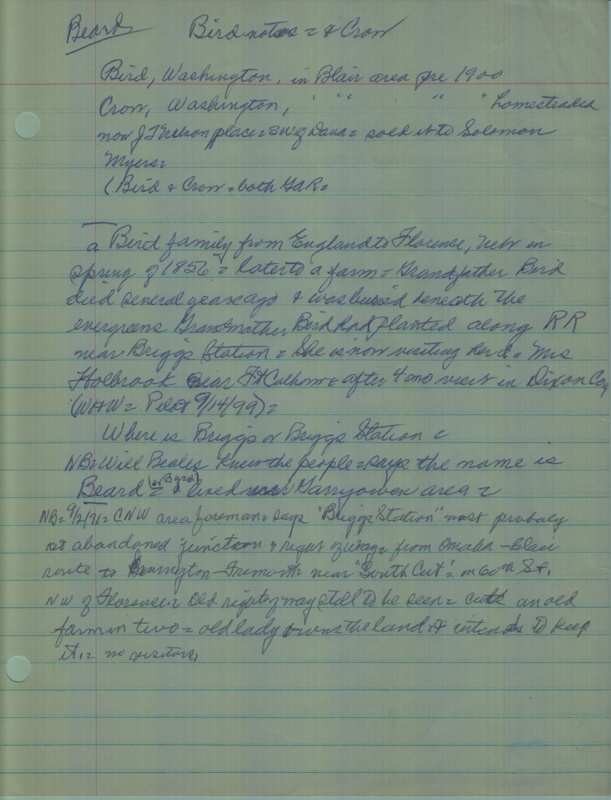 Beard Bird notes = & Crow
Bird, Washington, in Blair area pre 1900
Crow, Washington, " " " " homesteaded
now J T Nelson place = SW of Dana = sold it to Solomon
Myers =
(Bird & Crow = both GAR =
a Bird family from England to Florence, Nebr in
spring of 1856 = later to a farm = Grandfather Bird
died several years ago & was buried beneath the
evergreens Grandmother Bird had planted along RR
near Briggs Station = She is now visiting her d. Mrs
Holbrook near Ft Calhoun = after 4 mo visit in Dixon Coy
(WHW = Pilot 9/14/99) =
Where is Briggs or Briggs Station
NB = Will Beales knew the people = says the name is
Beard = (or Byrd) & lived near Garryowen area =
NB = 9/2/71 = CNW area foreman = says "Briggs Station" most probaly
at abandoned junction & right of way = from Omaha - Blair
route to - Fremont near "South Cut" = on 60th St.
NW of Florence = Old right of way still to be seen = cuts an old
farm in two = old lady owns the land & intends to keep
it = no visitors,